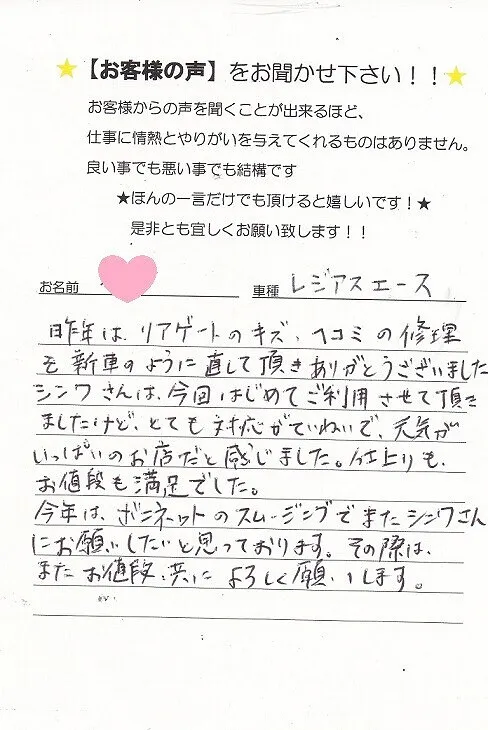 ★【お客様の声】をお聞かせ下さい！！★
お客様からの声を聞くことが出来るほど、
仕事に情熱とやりがいを与えてくれるものはありません。
良い事でも悪い事でも結構です
★ほんの一言だけでも頂けると嬉しいです！★
是非とも宜しくお願い致します！！
お名前 車種 レジアスエース
昨年は、リアゲートのキズ、ヘコミの修理
を新車のように直して頂きありがとうございました
シンワさんは、今回はじめてご利用させて頂き
ましたけど、とても対応がていねいで、元気が
いっぱいのお店だと感じました。仕上りも、
お値段も満足でした。
今年は、ボンネットのスムージングでまたシンワさん
にお願いしたいと思っております。その際は、
またお値段共によろしく願いします。